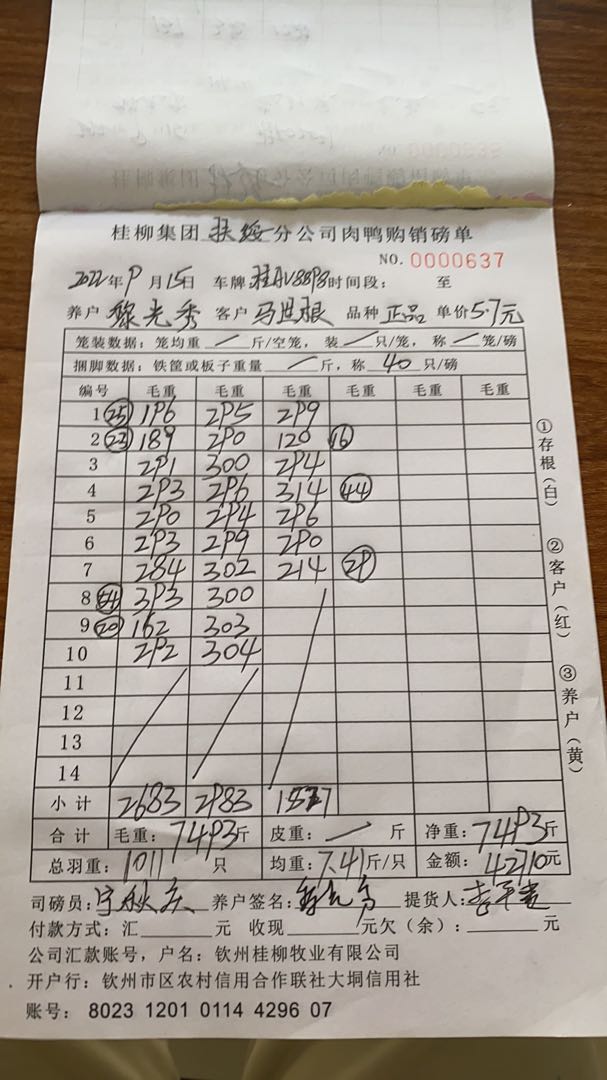 桂柳集团 扶绥 分公司肉鸭购销磅单
NO. 0000637
2022年9月15日 车牌 桂AV8898 时间段: 至
养户 黎光秀 客户 马世根 品种 正品 单价5.7元
笼装数据: 笼均重 / 斤/空笼, 装 / 只/笼, 称 / 笼/磅
捆脚数据: 铁筐或板子重量 / 斤, 称 40 只/磅
编号 毛重 毛重 毛重 毛重 毛重 毛重
1 (25) 196 295 299
2 (23) 189 290 120 (16)
3 291 300 294
4 293 296 314 (44)
5 290 294 296
6 293 299 290
7 284 302 214 (29)
8 (54) 393 300
9 (20) 162 303
10 292 304
11
12
13
14
小计 2683 2983
合计 毛重: 7493斤 皮重: / 斤 净重: 7493斤
总羽重: 1011 只 均重: 7.41斤/只 金额: 42710元
司磅员: 养户签名: 提货人:
付款方式: 汇 元 收现 元欠(余): 元
公司汇款账号, 户名: 钦州桂柳牧业有限公司
开户行: 钦州市区农村信用合作联社大垌信用社
账号: 8023 1201 0114 4296 07
①存根(白)
②客户(红)
③养户(黄)